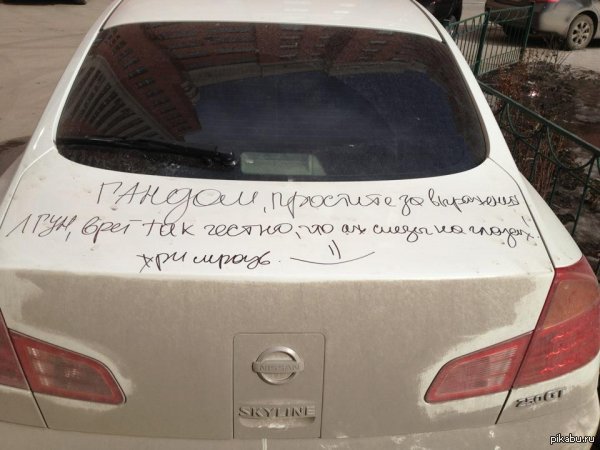 ГАНДОМ, простите за выражение
ЛГУН, врет так честно, что аж слезы на глазах
хри мразь. =))
NISSAN
SKYLINE
250GT
pikabu.ru